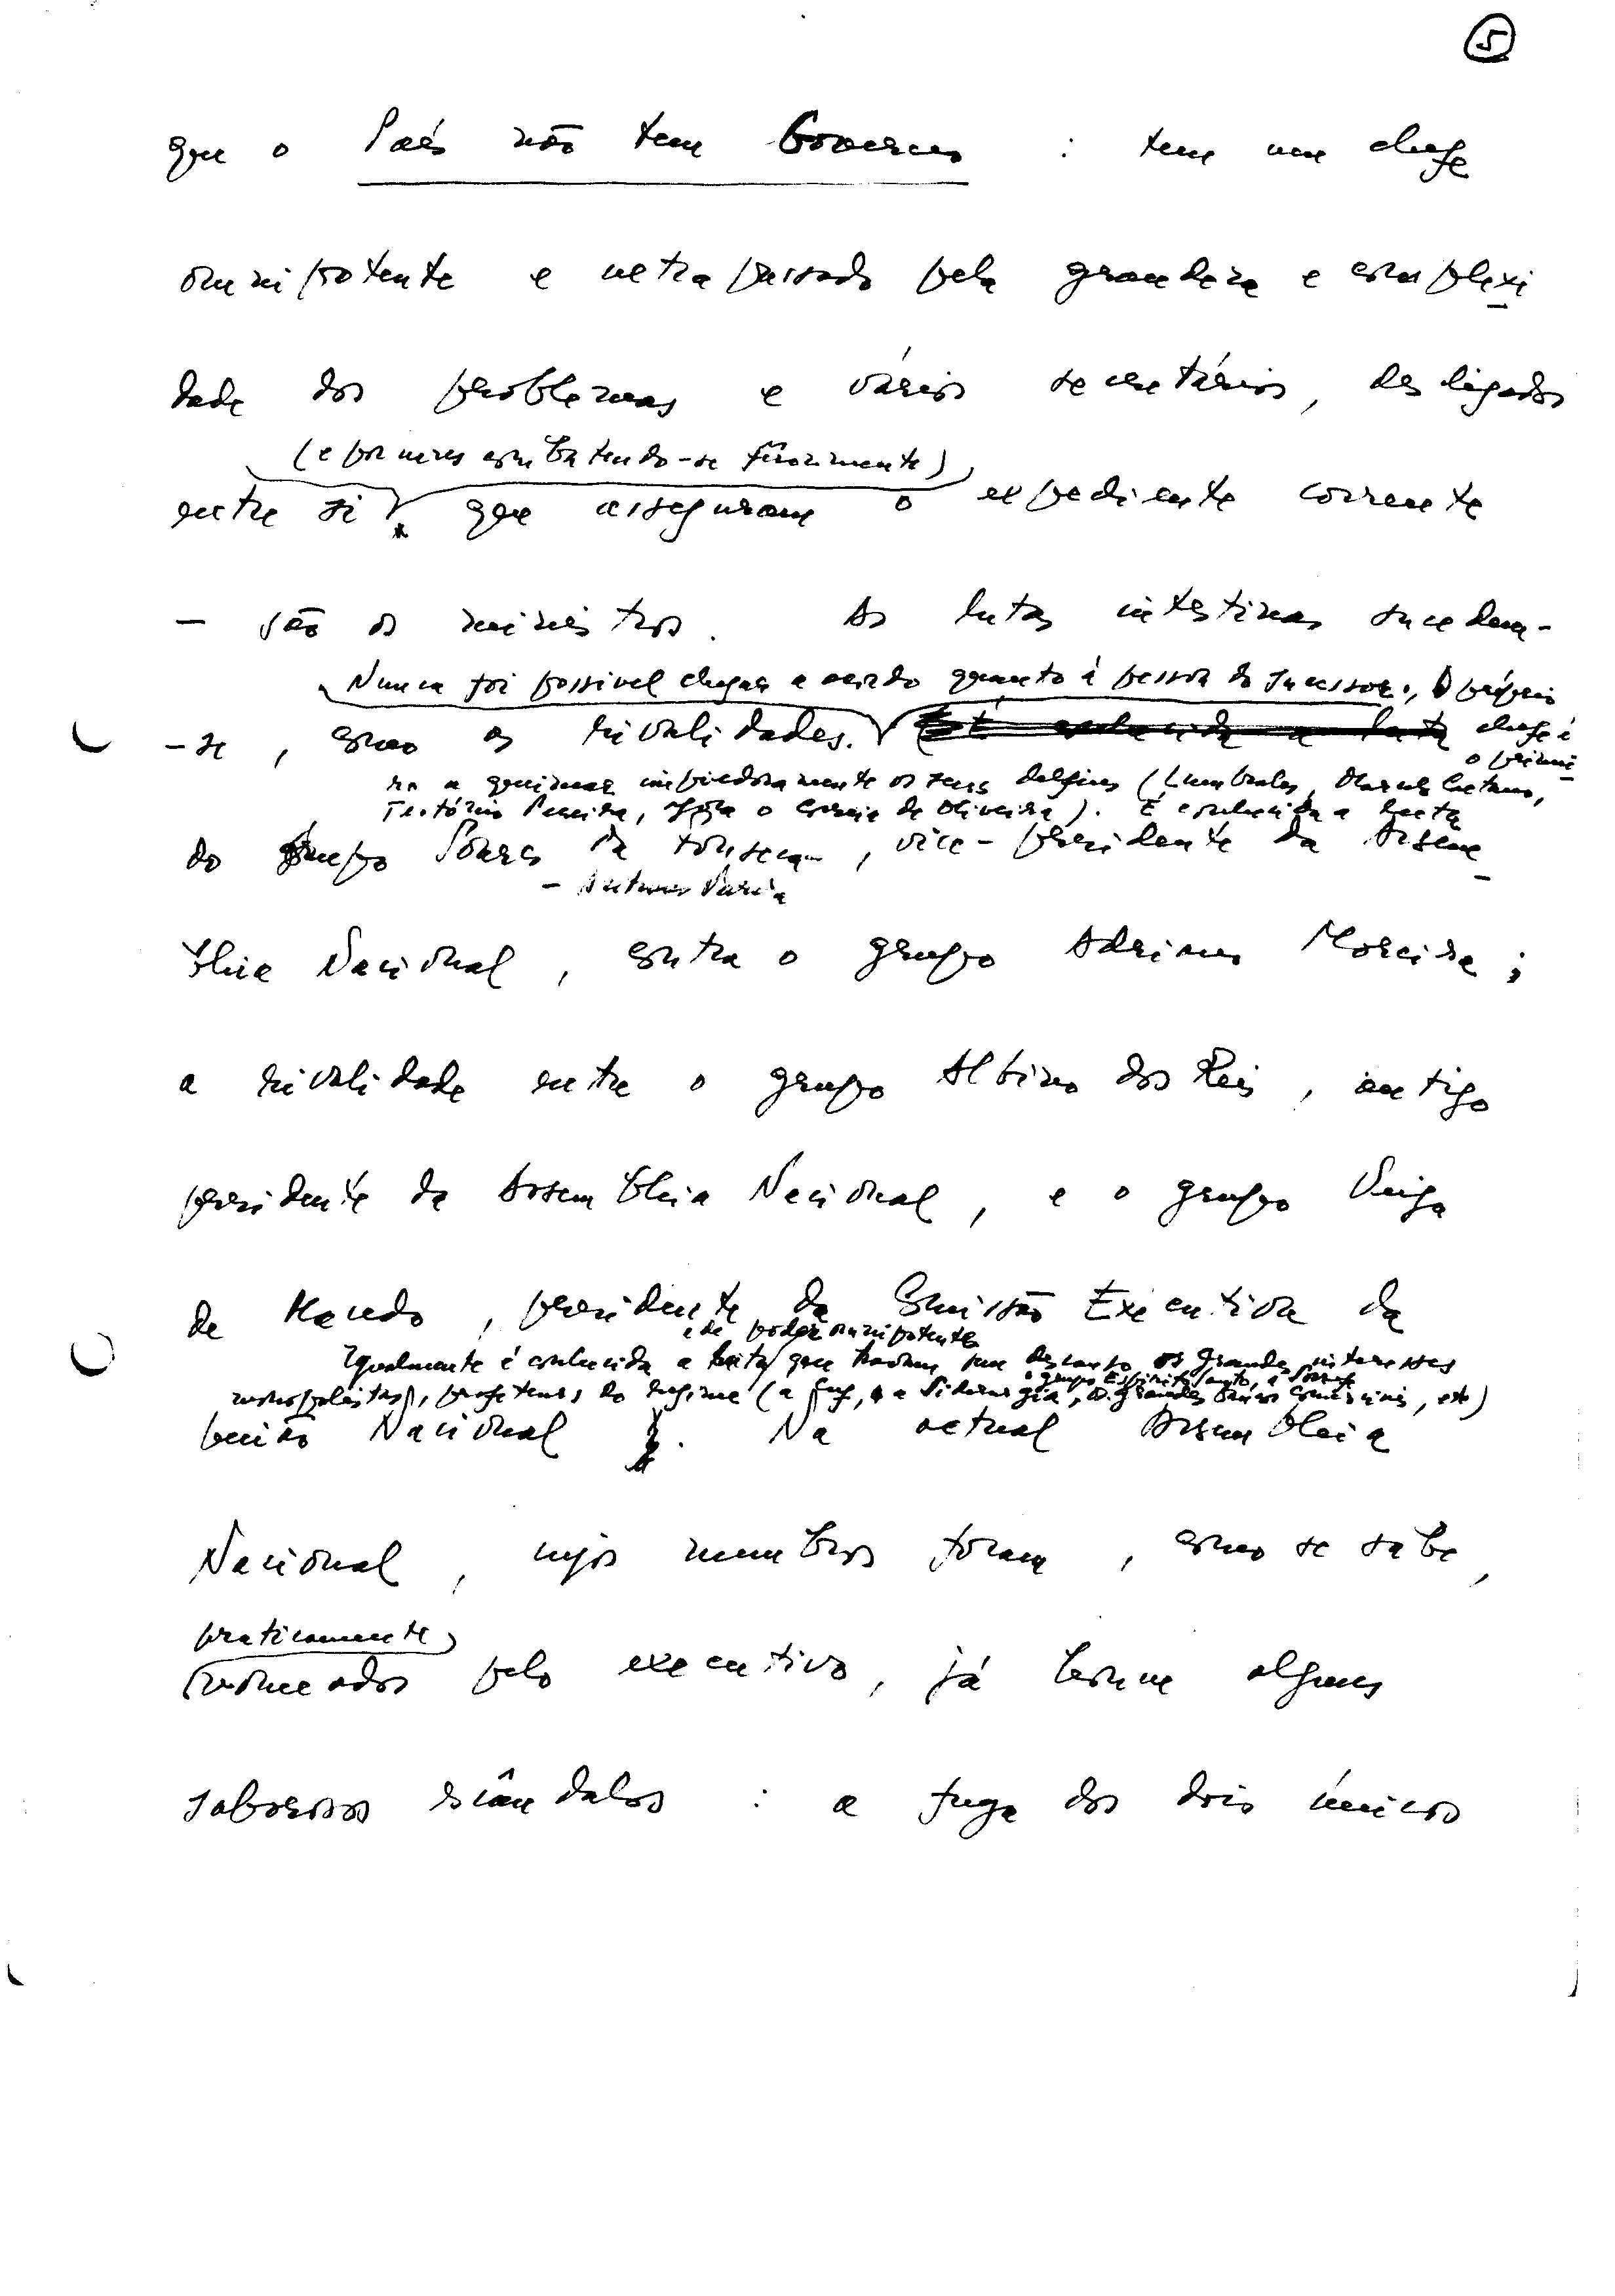 5
que o País não tem Governo : tem um chefe
omnipotente e ultrapassado pela grandeza e complexi
dade dos problemas e vários secretários, desligados
(e por vezes combatendo-se ferozmente)
entre si, que asseguram o expediente corrente
— são os ministros. As lutas intestinas sucedem-
Nunca foi possivel chegar a acordo quanto à pessoa do sucessor., O próprio
-se, como as rivalidades. É conhecida a luta chefe é
o primei
ro a queimar impiedosamente os seus delfins (Lumbrales, Marcelo Caetano,
Teotónio Pereira, hoje o Correia de Oliveira). É conhecida a luta
do grupo Soares da Fonseca, vice-presidente da Assem
- Antunes Varela
bleia Nacional, contra o grupo Adriano Moreira;
a rivalidade entre o grupo Albino dos Reis, antigo
presidente da Assembleia Nacional, e o grupo Veiga
de Macedo, presidente da Comissão Executiva da
e de poder omnipotente
Igualmente é conhecida a luta que travam sem descanso os grandes interesses
o grupo Espírito Santo, a Sonap
monopolistas, profiteurs do regime (a Cuf, a Siderurgia, os grandes bancos comerciais, etc)
União Nacional. Na actual Assembleia
Nacional, cujos membros foram, como se sabe,
praticamente
nomeados pelo executivo, já houve alguns
saborosos escândalos : a fuga dos dois únicos